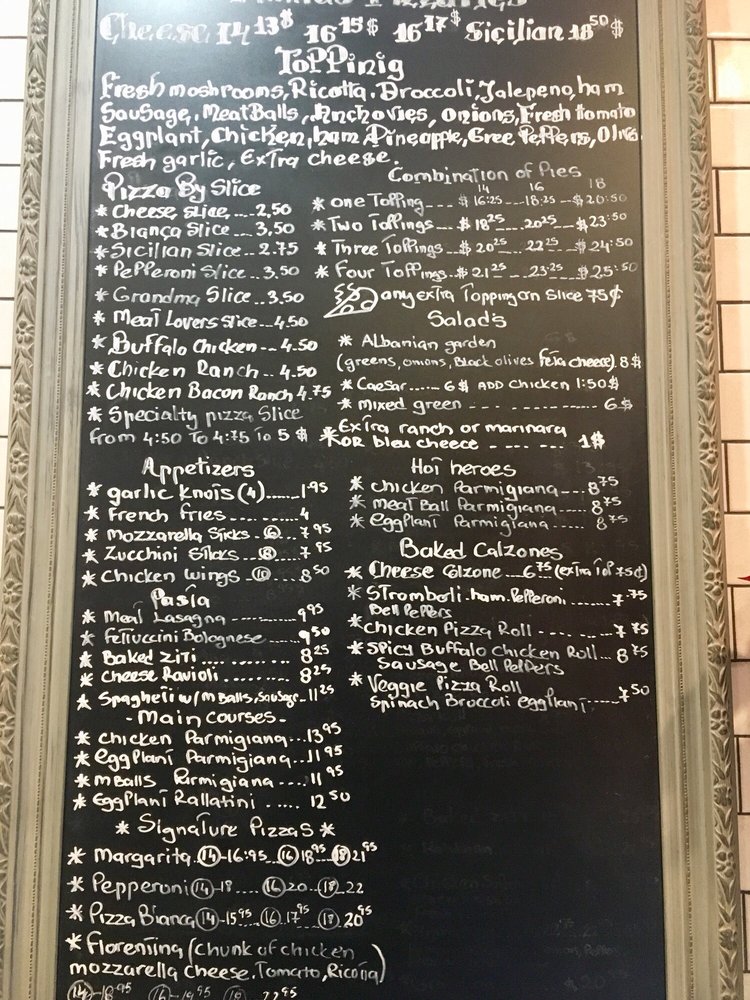 Cheese 14 13$ 16 15$ 16 17$ Sicilian 18 50 $
Toppinig
Fresh moshrooms, Ricotta, Broccoli, Jalepeno, ham
Sausage, MeatBalls, Anchovies, onions, Fresh tomato
Eggplant, Chicken, ham Pineapple, Gree Peppers, Olives
Fresh garlic, Extra cheese.
Pizza By Slice
* Cheese slice .... 2,50
* Biança Slice .... 3,50
* Sicilian Slice .. 2.75
* Pepperoni Slice .. 3,50
* Grandma Slice .. 3.50
* Meat Lovers Slice .. 4,50
* Buffalo Chicken .. 4.50
* Chicken Ranch .. 4.50
* Chicken Bacon Ranch 4.75
* Specialty pizza Slice
from 4:50 To 4:75 To 5 $
Combination of Pies
14 16 18
* one Topping --- $ 16:25 --- 18:25 --- $20:50
* Two Toppings --- $18 25 --- 20 25 --- $23:50
* Three Toppings --- $ 20 25 --- 22 25 --- $24:50
* Four Toppings --- $ 21 25 --- 23:25 --- $25:50
any extra Topping on Slice 75¢
Salads
* Albanian garden
(greens, onions, Black olives feta cheese) 8$
* Caesar ...... 6$ ADD chicken 1:50$
* mixed green - - - - - - - - - - - - 6$
* Extra ranch or marinara
OR bleu cheece - - - - - - - 1$
Appetizers
* garlic knots (4) ...... 1.95
* French fries .......... 4
* Mozzarella Sticks .. 6 .. 7 95
* Zucchini Sticks ... 8 .... 7 95
* Chicken wings .. 10 .... 8 50
Pasta
* Meat Lasagna ------ 9 95
* Fettuccini Bolognese ...... 9 50
* Baked Ziti .... ........ 8 25
* Cheese Ravioli ........ 8 25
* Spagheti w/ m Balls, Sausage .. 11 25
- Main courses -
* Chicken Parmigiana .. 13 95
* eggplant Parmigiana .. 11 95
* mBalls Parmigiana .... 11 95
* Eggplant Rallatini .. .... 12 50
* Signature Pizzas *
* Margarita. 14 - 16:95 16 18 95 18 21 95
* Pepperoni 14 - 18 .... 16 20 -- 18 .. 22
* Pizza Bianca 14 - 15 95 .. 16 .17 95 18 . 20 95
* Fiorentina (chunk of chicken
mozzarella cheese. Tomato, Ricotta)
14 - 18 95 16 - 19 95 18 22 95
Hot heroes
* chicken Parmigiana --- 8 75
* meat Ball Parmigiana --- 8 75
* eggplant Parmigiana --- 8 75
Baked Calzones
* Cheese Calzone ... 6 75 (extra Top 75¢)
* Stromboli. ham. Pepperoni ...... 7 75
Bell Peppers
* Chicken Pizza Roll ---- ---- 7 75
* Spicy Buffalo chicken Roll ... 8 75
Sausage Bell Peppers
* Veggie Pizza Roll
Spinach Broccoli eggplant ...... 7 50